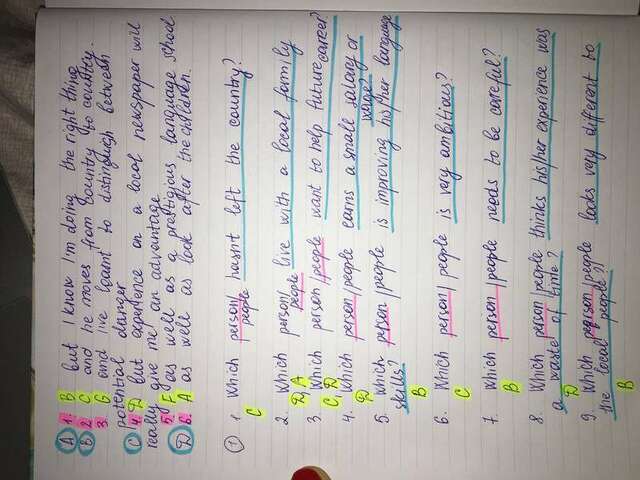 A 1. B but I know I'm doing the right thing
B 2 C and he moves from country to country.
3 G and I've learnt to distinguish between
potential danger
C 4. D but experience on a local newspaper will
really give me an advantage
5. F as well as a prestigious language school
D 6. A as well as look after the children.
1 1. Which person/ hasn't left the country?
people
C
2. Which person/ live with a local family
people
D, A
3. Which person/people want to help future career?
C, D
4. Which person/people earns a small salary or
D
wage?
5. Which person/people is improving his/her language
skills?
B
6. Which person/people is very ambitious?
C
7. Which person/people needs to be careful?
B
8. Which person/people thinks his/her experience was
a waste of time?
D
9. Which peorson/people looks very different to
the local people?
B